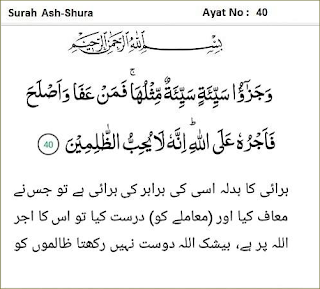 Surah Ash-Shura Ayat No : 40
بِسْمِ اللّٰهِ الرَّحْمٰنِ الرَّحِيْمِ
وَجَزٰٓؤُا سَيِّئَةٍ سَيِّئَةٌ مِّثْلُهَا ۚ فَمَنْ عَفَا وَاَصْلَحَ
فَاَجْرُهٗ عَلَى اللّٰهِ ؕ اِنَّهٗ لَا يُحِبُّ الظّٰلِمِيْنَ 40
برائی کا بدلہ اسی کی برابر کی برائی ہے تو جس نے
معاف کیا اور (معاملے کو) درست کیا تو اس کا اجر
اللہ پر ہے، بیشک اللہ دوست نہیں رکھتا ظالموں کو